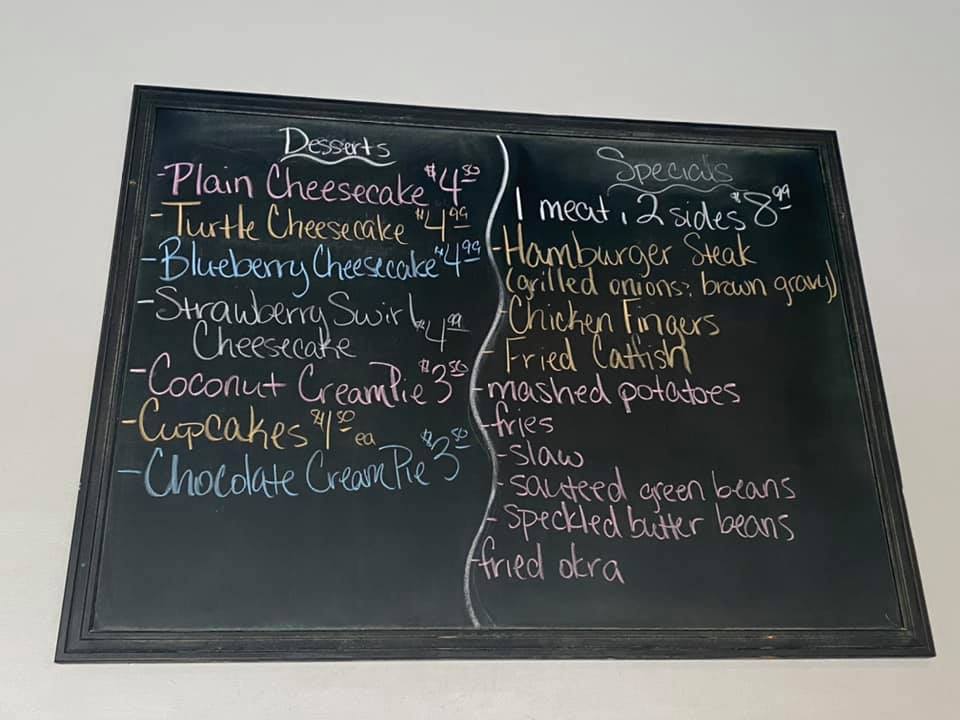 Desserts
-Plain Cheesecake $4.50
-Turtle Cheesecake $4.99
-Blueberry Cheesecake $4.99
-Strawberry Swirl
Cheesecake $4.99
-Coconut Cream Pie $3.50
-Cupcakes $1.50 ea
-Chocolate Cream Pie $3.50
Specials
1 meat, 2 sides $8.99
-Hamburger Steak
(grilled onions; brown gravy)
-Chicken Fingers
-Fried Catfish
-mashed potatoes
-fries
-slaw
-sauteed green beans
-speckled butter beans
-fried okra